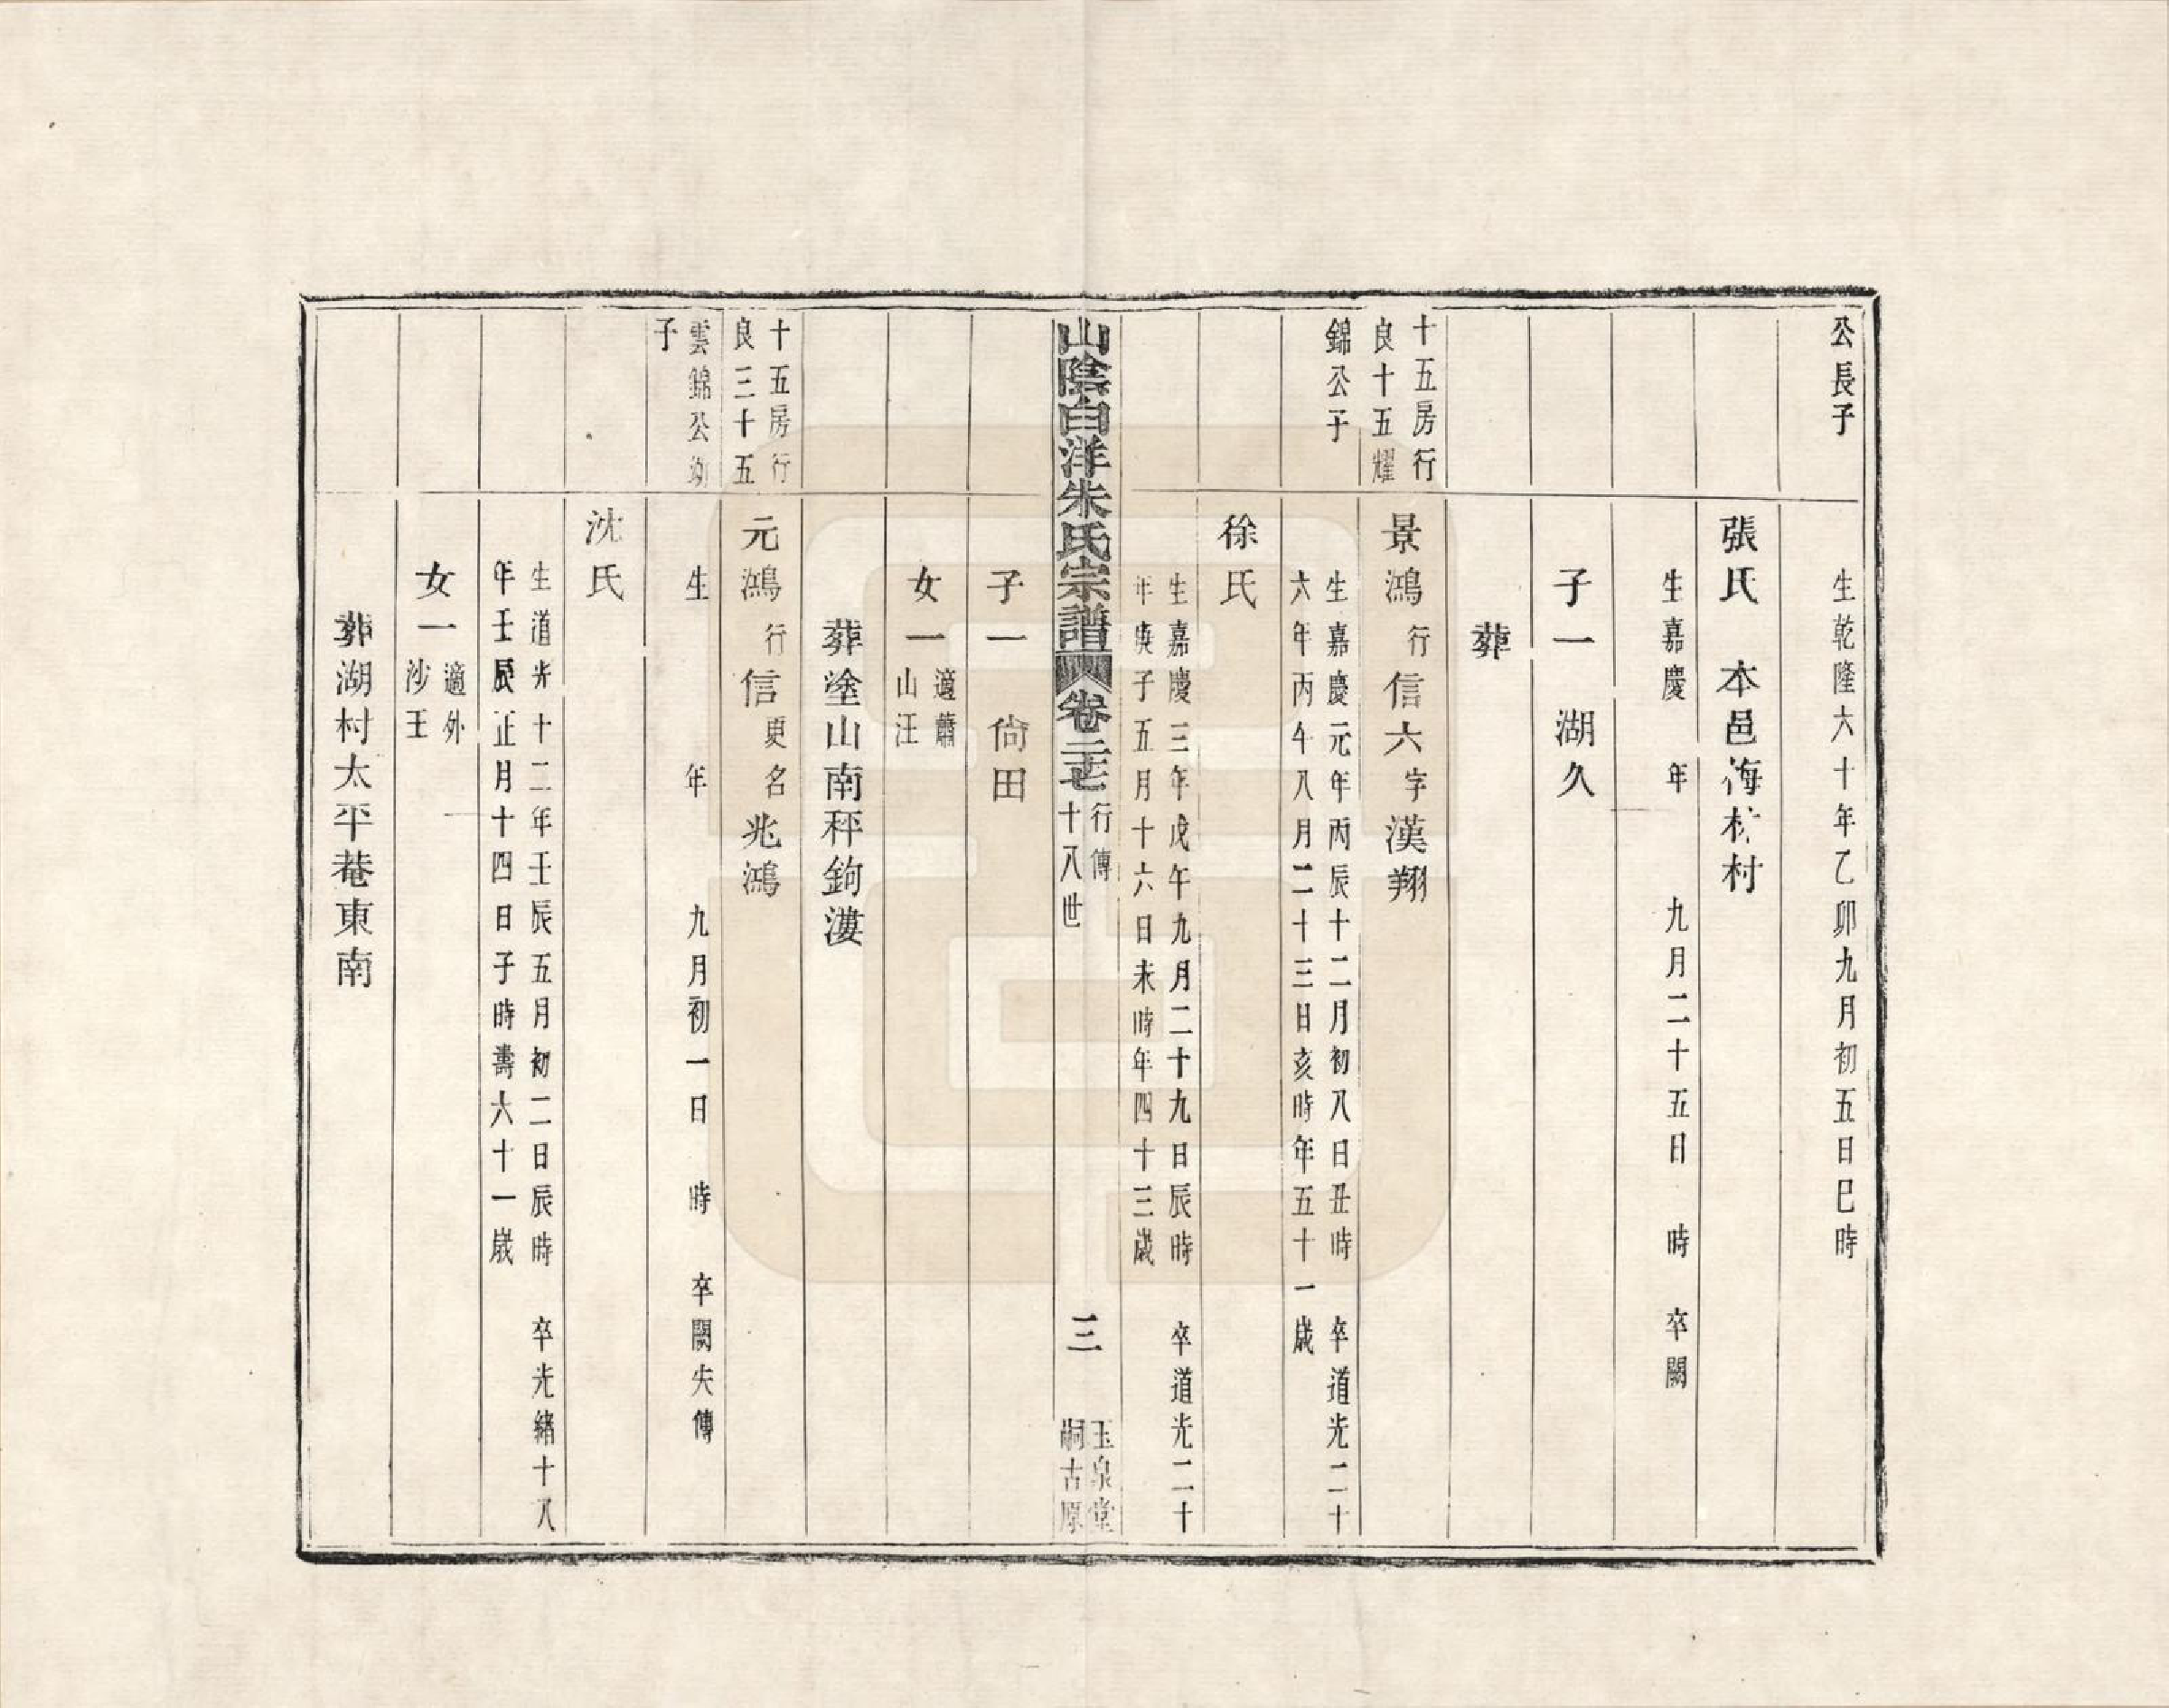 公長子
生乾隆六十年乙卯九月初五日巳時
張氏　本邑海村
生嘉慶　年　九月二十五日　時　卒闕
子一　湖久
葬
十五房行
良十五耀
錦公子
景鴻行信六字漢翔
生嘉慶元年丙辰十二月初八日丑時　卒道光二十
六年丙午八月二十三日亥時年五十一歲
徐氏
生嘉慶三年戊午九月二十九日辰時　卒道光二十
年庚子五月十六日未時年四十三歲
山陰白洋朱氏宗譜　卷二十七　行傳
十八世　三　玉泉堂
嗣古原
子一　尙田
女一　適蕭
山汪
葬塗山南秤鉤漊
十五房行
良三十五
雲錦公幼
子
元鴻行信更名兆鴻
生　年　九月初一日　時　卒闕失傳
沈氏
生道光十二年壬辰五月初二日辰時　卒光緖十八
年壬辰正月十四日子時壽六十一歲
女一　適外
沙王
葬湖村太平菴東南